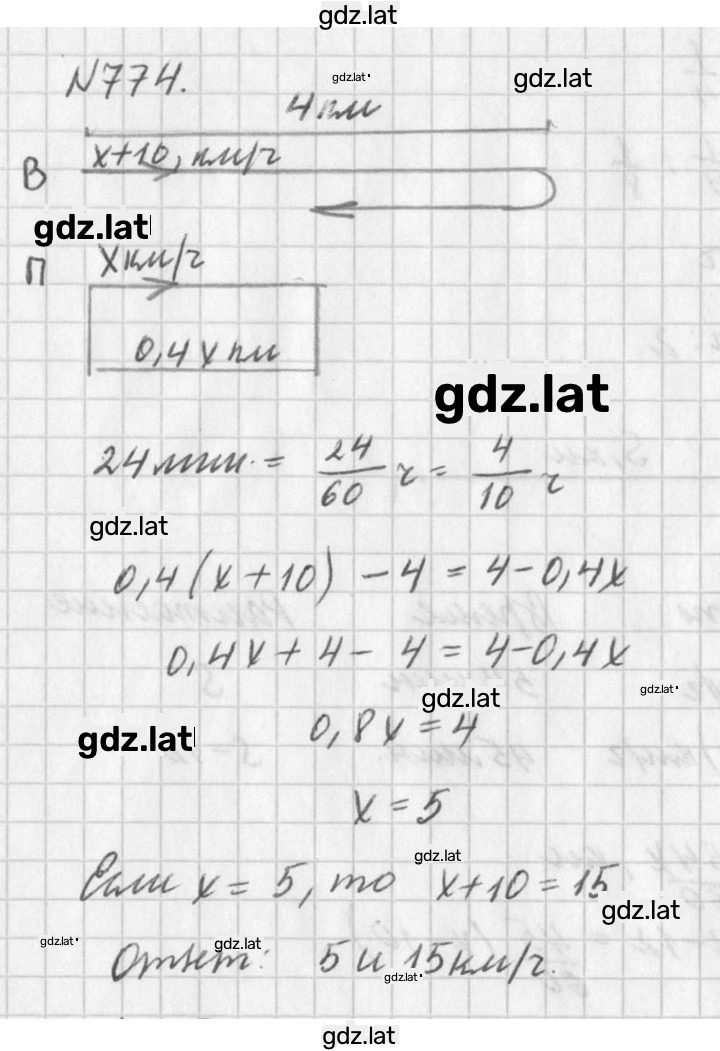 gdz.lat
N774.
gdz.lat·
gdz.lat
4 км
В x+10, км/ч
gdz.lat
П x км/ч
0,4x км
gdz.lat
24 мин. = 24/60 ч = 4/10 ч
gdz.lat
0,4(x+10) - 4 = 4 - 0,4x
0,4x + 4 - 4 = 4 - 0,4x
gdz.lat·
gdz.lat
0,8x = 4
gdz.lat
x = 5
gdz.lat
Если x = 5, то x+10 = 15
gdz.lat
gdz.lat·
gdz.lat
Ответ: 5 и 15 км/ч.
gdz.lat·
gdz.lat